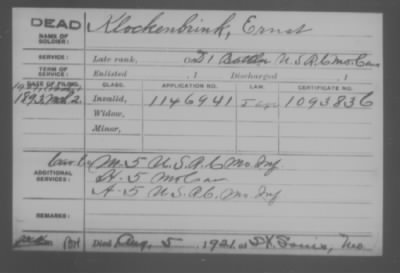 DEAD
Klockenbrink, Ernst
NAME OF SOLDIER:
SERVICE:
Late rank, D 1 Battn U.S.R.C. Mo. Cav
TERM OF SERVICE:
Enlisted , 1 Discharged , 1
DATE OF FILING. CLASS. APPLICATION NO. LAW. CERTIFICATE NO.
1893 Invalid, 1146941 1093836
Widow,
Minor,
M. 5 U.S.R.C. Mo Inf
ADDITIONAL SERVICES:
H. 5 Mo Cav
A. 5 U.S.R.C. Mo Inf
REMARKS:
Died Aug. 5, 1921, at St. Louis, Mo